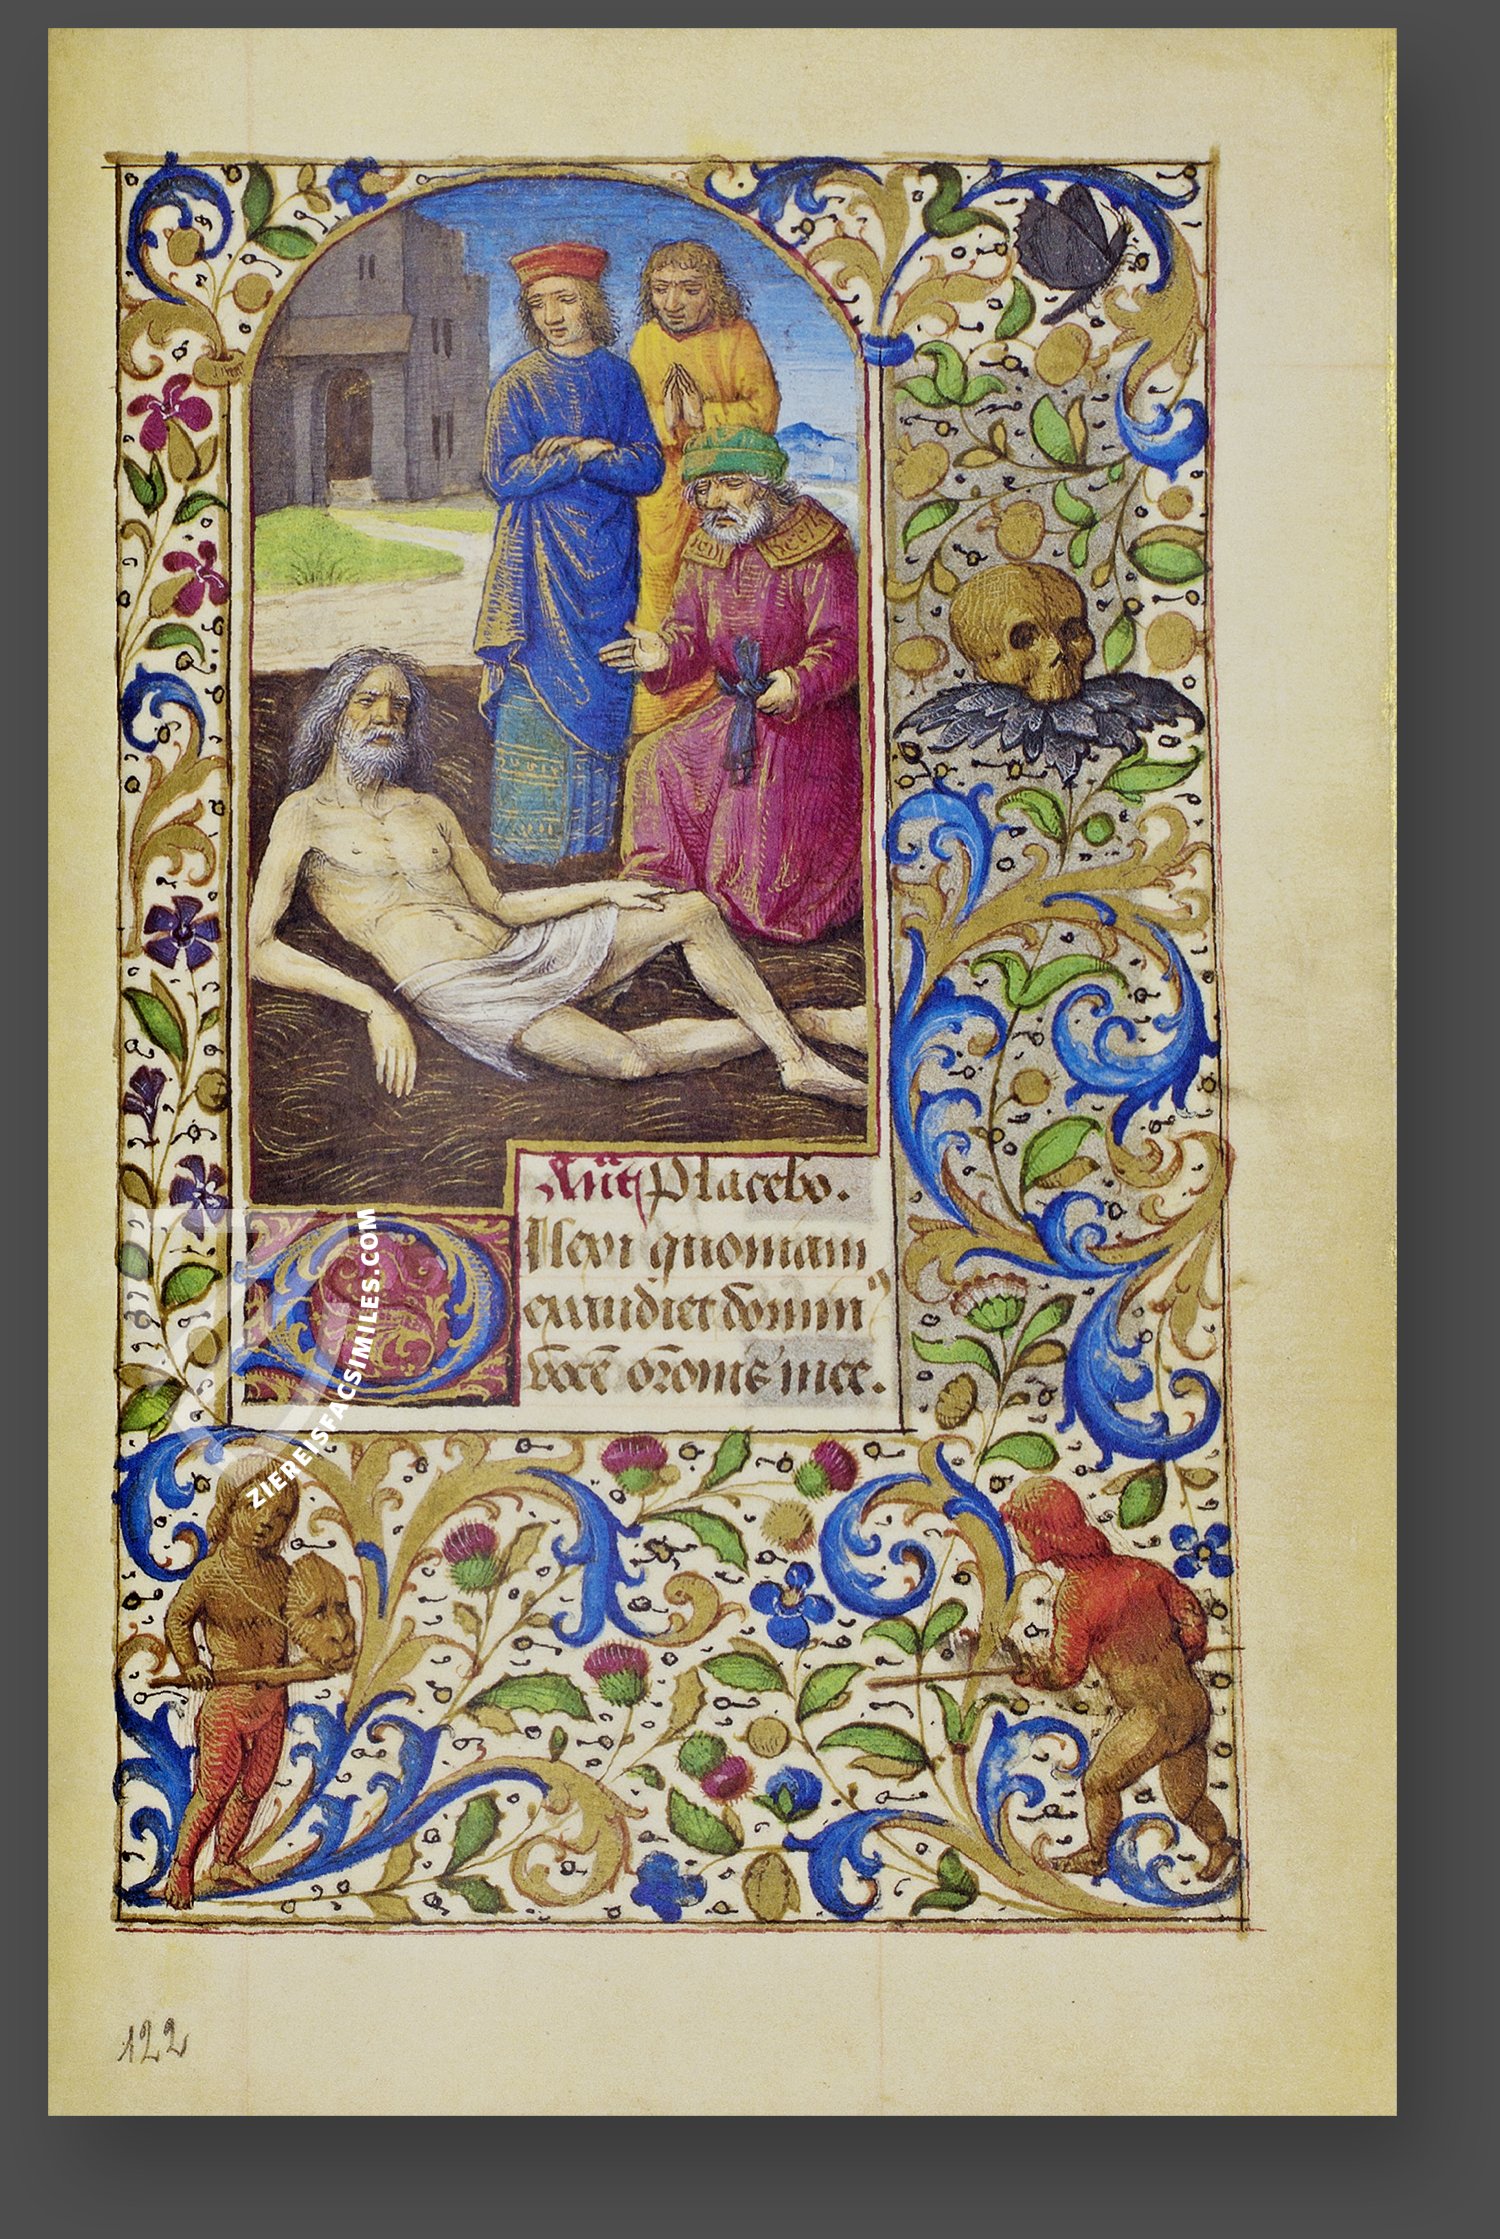 Añt Placebo.
Dilexi quoniam
exaudiet domin9
vocē orōnis mee.
122
ZIEREISFACSIMILES.COM